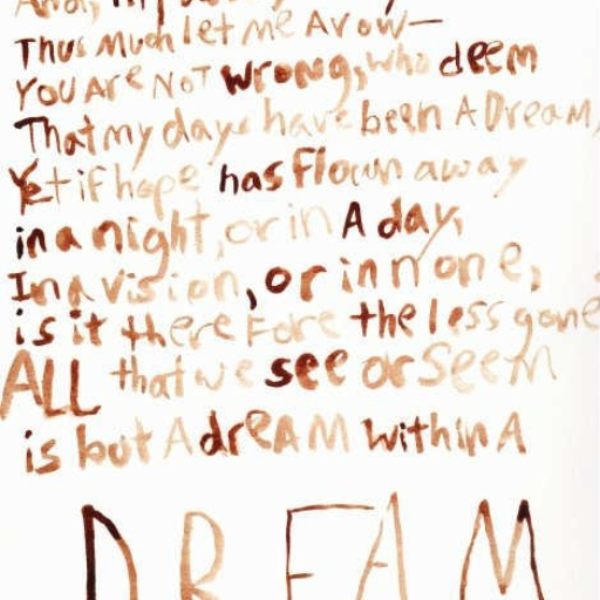 And,
Thus Much let me Avow—
YOU Are NOT wrong, who deem
That my days have been A Dream,
Yet if hope has flown away
in a night, or in A day,
In a vision, or in none,
is it therefore the less gone
ALL that we see or seem
is but A dreAM within A
DREAM